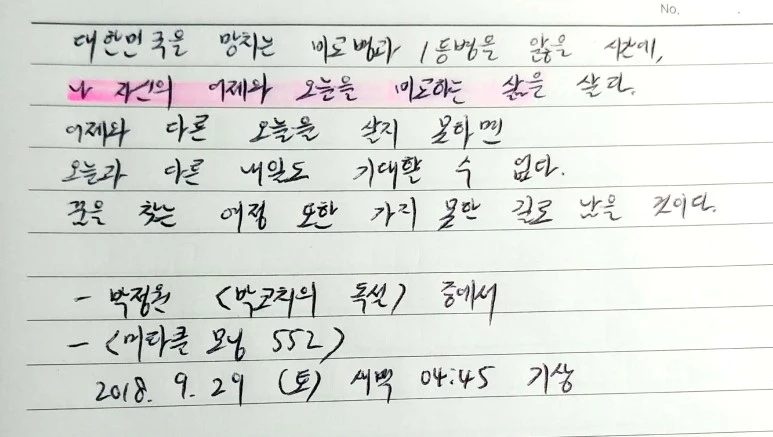 No.
대한민국을 망치는 비교병과 1등병을 앓을 시간에,
나 자신의 어제와 오늘을 비교하는 삶을 살라.
어제와 다른 오늘을 살지 못하면
오늘과 다른 내일도 기대할 수 없다.
꿈을 찾는 여정 또한 가지 못한 길로 남을 것이다.
- 박정원 <박코치의 독설> 중에서
- <미라클 모닝 552>
2018. 9. 29 (토) 새벽 04:45 기상